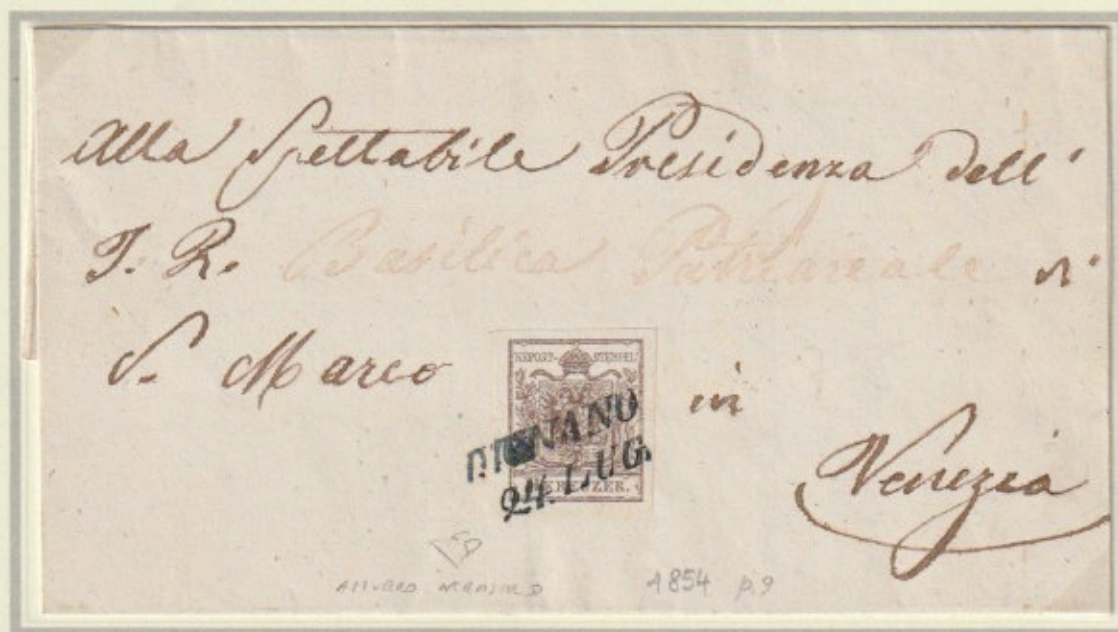 Alla Spettabile Presidenza dell'
I. R. Basilica Patriarcale di
S. Marco
KKPOST-STEMPEL
in
NANO
24. LUG.
KREUZER.
Venezia
1854 p. 9